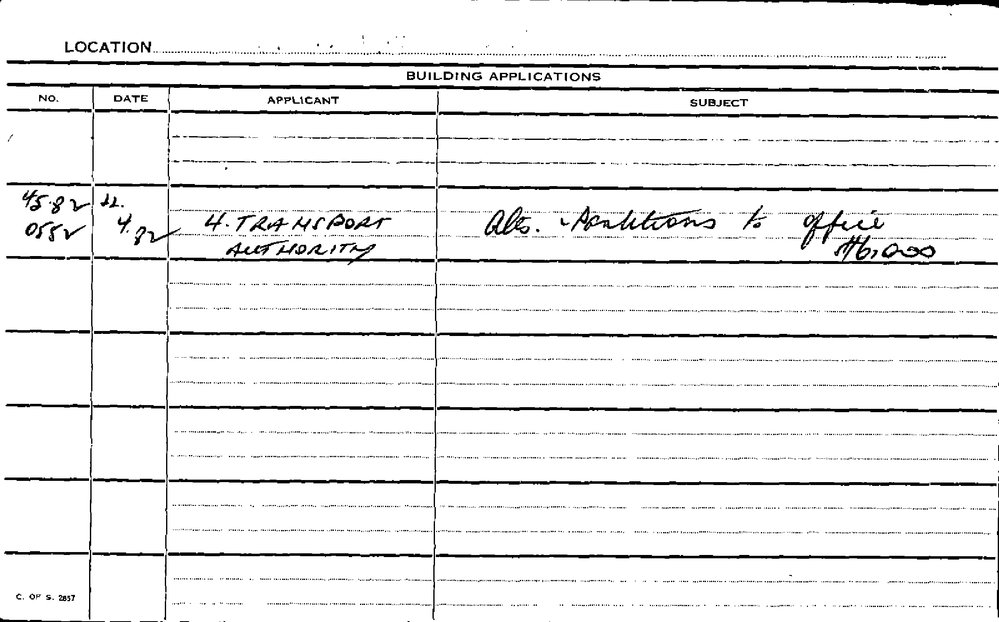 LOCATION
BUILDING APPLICATIONS
NO. DATE APPLICANT SUBJECT
45.82 22.
0552 4.82 4. TRANSPORT Alts. Partitions to office
AUTHORITY $16,000
C. OF S. 2857